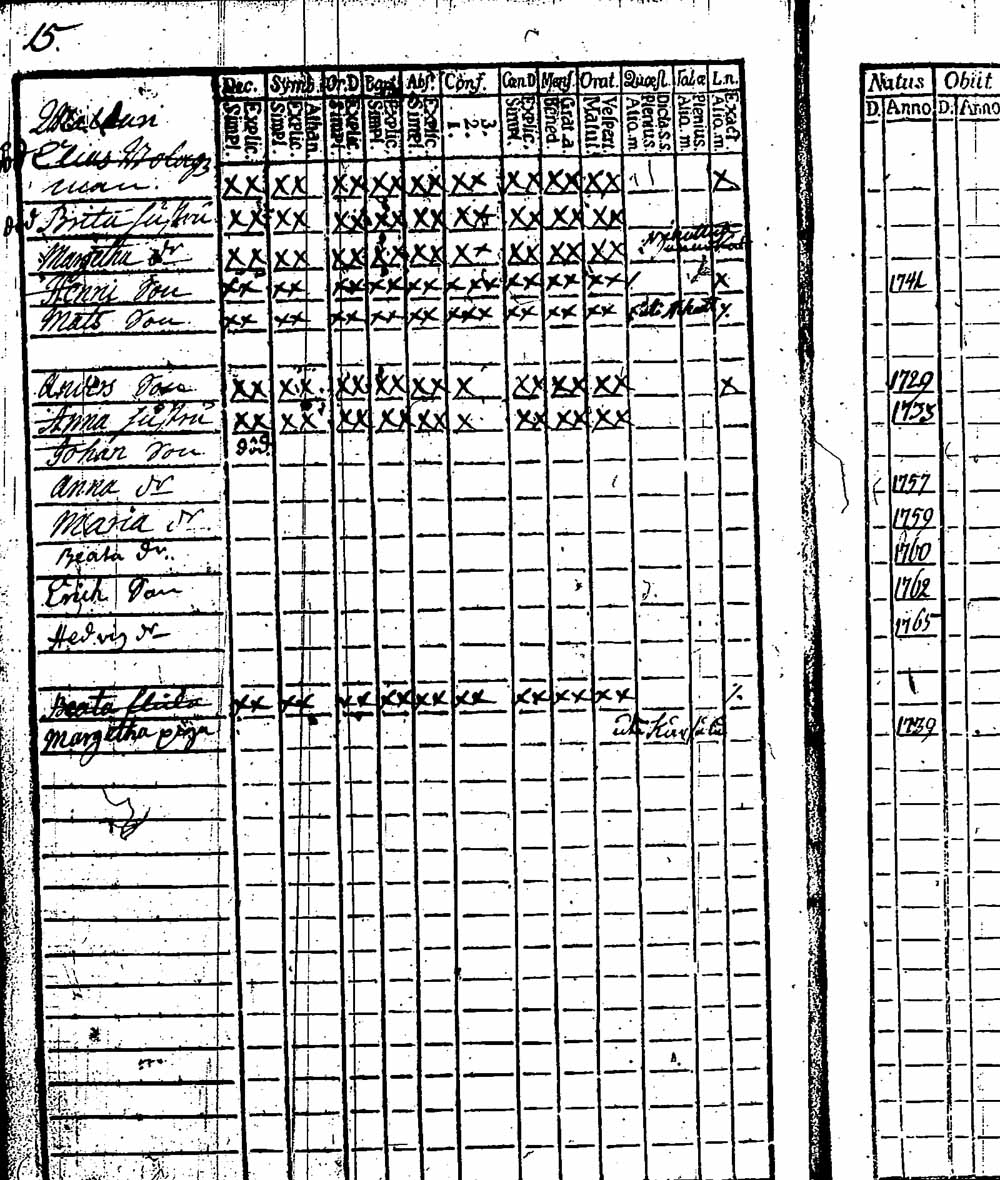 15.
Dec. Symb. Or.D Bapt. Abs. Conf. Cœn.D Mens. Orat. Quæst. Tabæ L.n.
Simpl. Explic. Simpl. Explic. Athan. Simpl. Explic. Simpl. Explic. Simpl. Explic. 1. 2. 3. Simpl. Explic. Bened. Grat.a Matut. Vespert. Alio.m. Plenius. Dicta S.S. Alio.m. Plenius. Alio.m. Exact.
Natus Obiit
D. Anno D. Anno
Elias
man. xx xx xx xx xx xx xx xx xx x
död Brita hustru xx xx xx xx xx xx xx xx xx
Margetha dr xx xx xx xx xx xx xx xx xx
Henric Son xx xx xx xx xx xxx xx xx xx x 1741
Mats Son xx xx xx xx xx xxx xx xx xx
Anders Son xx xx xx xx xx x xx xx xx x 1729
Anna hustru xx xx xx xx xx x xx xx xx 1733
Johan Son död
Anna dr 1757
Maria dr 1759
Beata dr. 1760
Erich Son 1762
Hedvig dr 1765
Beata xx xx xx xx xx xx xx xx xx
Margetha piga 1739